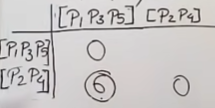 [P₁P₃P₅] [P₂P₄]
[P₁P₃P₅] 0
[P₂P₄] 6 0